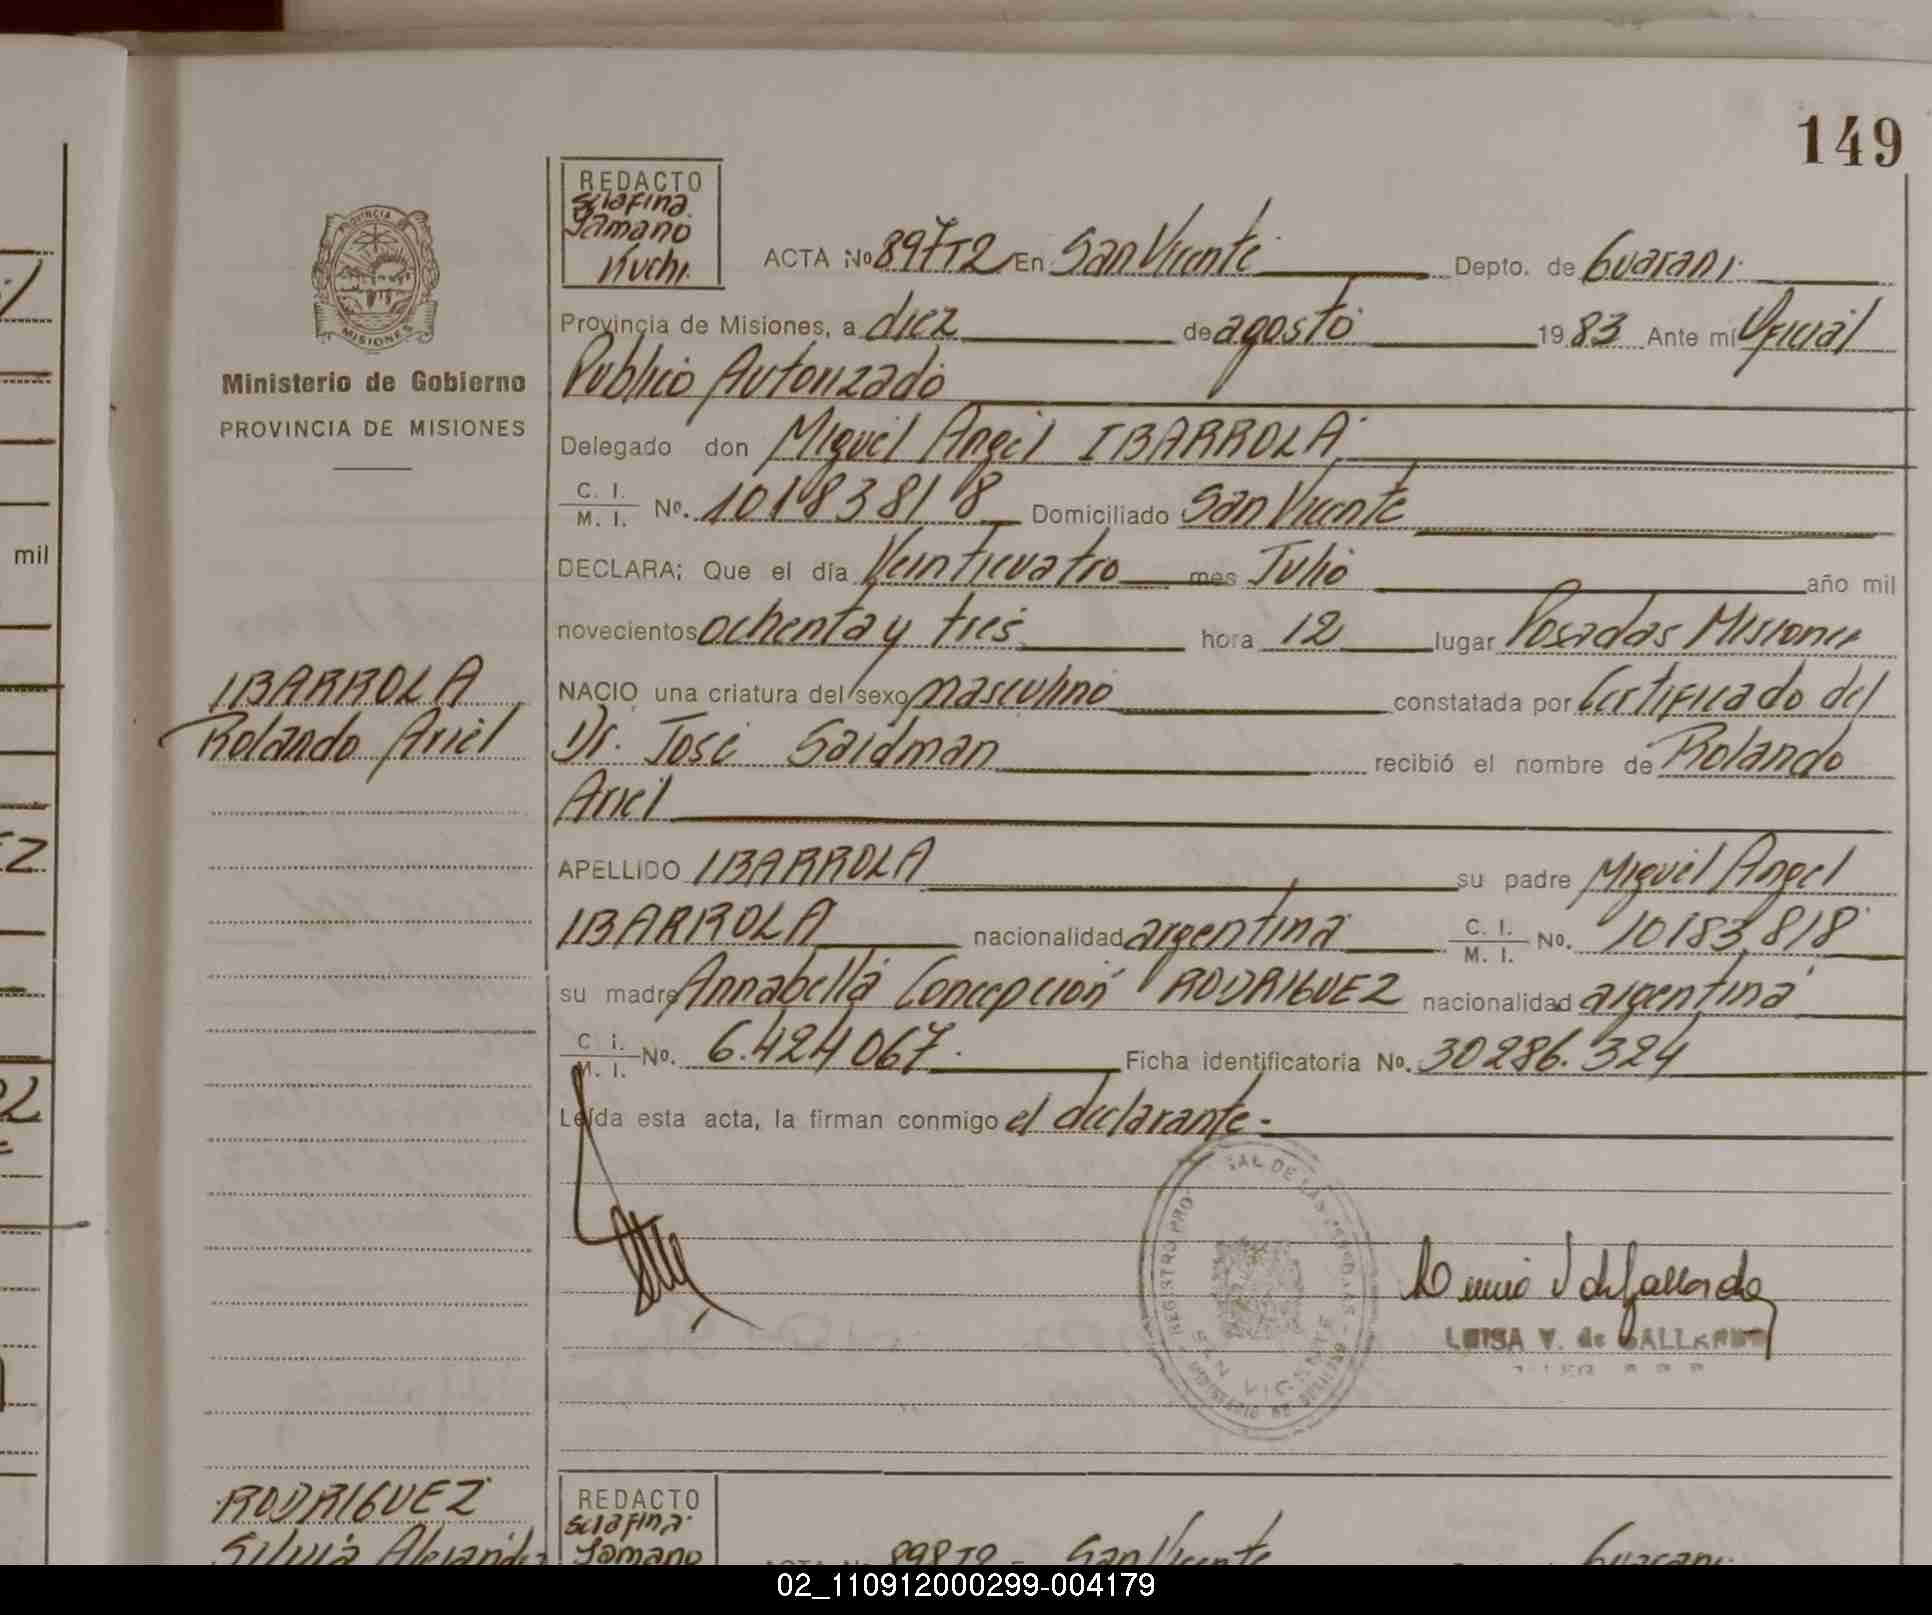 149
REDACTO
Serafina
Tamano
Kuchi.
ACTA No 897T2 En San Vicente Depto. de Guarani.
Provincia de Misiones, a diez de agosto 1983 Ante mí Oficial
Publico Autorizado
Delegado don Miguel Angel IBARROLA
C. I. / M. I. No. 10183818 Domiciliado San Vicente
DECLARA; Que el día Veinticuatro mes Julio año mil
novecientos ochenta y tres hora 12 lugar Posadas Misiones
NACIO una criatura del sexo masculino constatada por Certificado del
Dr. José Saidman recibió el nombre de Rolando
Ariel
APELLIDO IBARROLA su padre Miguel Angel
IBARROLA nacionalidad argentina C. I. / M. I. No. 10183818
su madre Annabella Concepción RODRIGUEZ nacionalidad argentina
C. i. / M. I. No. 6.424067. Ficha identificatoria No. 30286.324
Leída esta acta, la firman conmigo el declarante.-
LUISA V. de GALLARDO
PROVINCIA
MISIONES
Ministerio de Gobierno
PROVINCIA DE MISIONES
IBARROLA
Rolando Ariel
REGISTRO PRO
AL DE LAS PERSONAS
SAN VICENTE
RODRIGUEZ
Silvia Alejandra
REDACTO
Serafina
Tamano
ACTA No 898T2 En San Vicente Guarani
mil
EZ
02_110912000299-004179